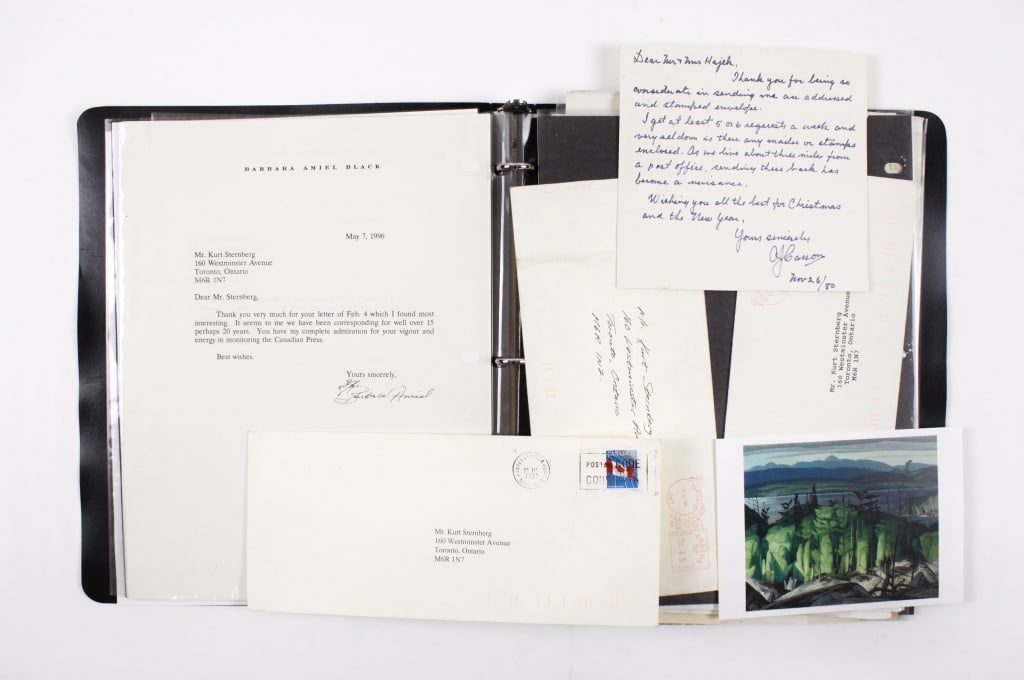 BARBARA AMIEL BLACK
May 7, 1996
Mr. Kurt Sternberg
160 Westminster Avenue
Toronto, Ontario
M6R 1N7
Dear Mr. Sternberg,
Thank you very much for your letter of Feb. 4 which I found most
interesting. It seems to me we have been corresponding for well over 15
perhaps 20 years. You have my complete admiration for your vigour and
energy in monitoring the Canadian Press.
Best wishes.
Yours sincerely,
Barbara Amiel
Dear Mr & Mrs Hajek,
Thank you for being so
considerate in sending me an addressed
and stamped envelope.
I get at least 5 or 6 requests a week and
very seldom is there any mailer or stamps
enclosed. As we live about three miles from
a post office, sending these back has
become a nuisance.
Wishing you all the best for Christmas
and the New Year.
Yours sincerely
AJ Casson
Nov 26/80
Mr. Kurt Sternberg
160 Westminster
Toronto, Ontario
M6R 1N7
Mr. Kurt Sternberg
160 Westminster Avenue
Toronto, Ontario
M6R 1N7
CANADA
POSTAL CODE
Mr. Kurt Sternberg
160 Westminster Avenue
Toronto, Ontario
M6R 1N7